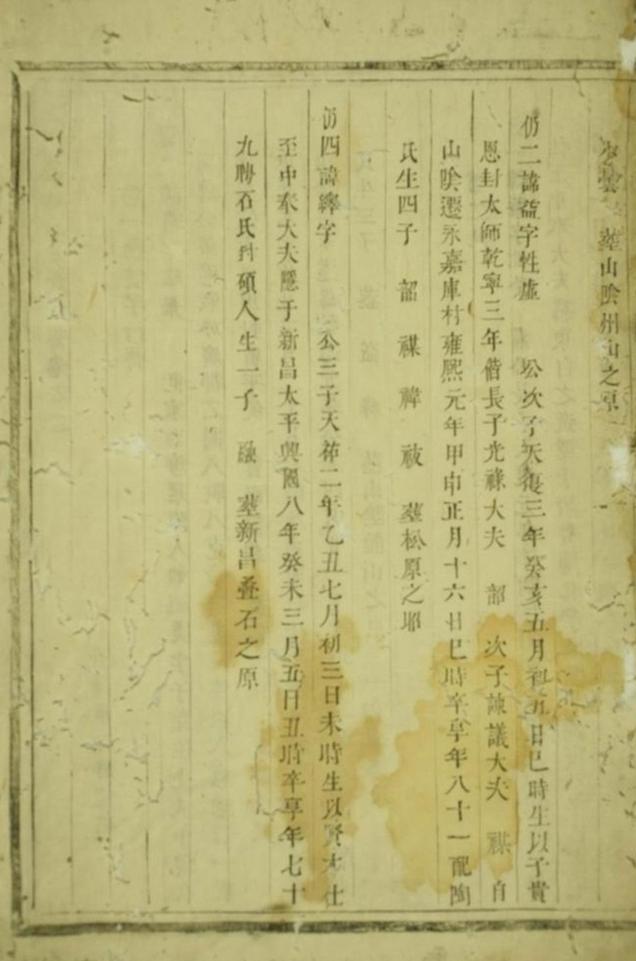 雲 塟山陰州山之原
仍二諱益字性虛 公次子天復三年癸亥五月初五日巳時生以子貴
恩封太師乾寧三年偕長子光祿大夫 韶 次子諫議大夫 禖 自
山陰遷永嘉庫村雍熙元年甲申正月十六日巳時卒享年八十一配陶
氏生四子 韶 禖 禕 祓 塟松原之
仍四諱繹字 公三子天祐二年乙丑七月初三日未時生以賢才仕
至中奉大夫隱于新昌太平興國八年癸未三月五日丑時卒享年七十
九聘石氏封碩人生一子 融 塟新昌叠石之原